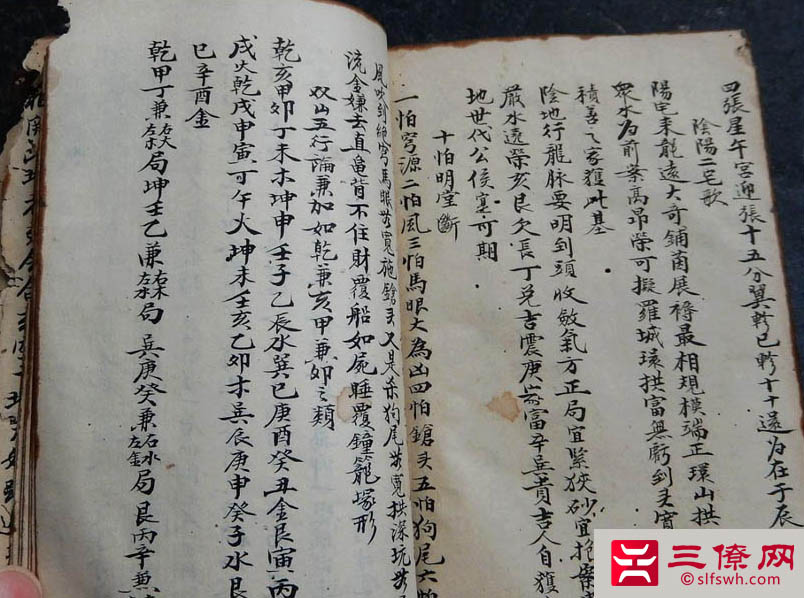 四張星午宮迎張十五分翼軫巳軫十十還為在于辰
陰陽二宅歌
陽宅來龍遠大奇鋪茵展褥最相規模端正環山拱
眾水為前案高昂榮可擬羅城環拱富無虧到头穴
積善之家獲此基
陰地行龍脉要明到頭收斂氣方正局宜緊狹砂宜抱案
嚴水遠榮亥艮欠長丁兌吉震庚富辛巽貴吉人自獲
地世代公侯定可期
十怕明堂斷
一怕穹源二怕風三怕馬眼大為凶四怕鎗头五怕狗尾六怕
風吹到 穹馬眼 寬施鎗头又是杀狗尾 寬拱深坑
流金嫌去直龜背不住財覆船如屍睡覆鐘籠塚形
双山五行論兼加如乾兼亥甲兼卯之類
乾亥甲卯丁未木坤申壬子乙辰水巽巳庚酉癸丑金艮寅丙
戌火乾戌甲寅可午火坤未壬亥乙卯木巽辰庚申癸子水艮
巳辛酉金
乾甲丁兼右火左木局坤壬乙兼右木左水局巽庚癸兼右水左金局艮丙辛兼
三僚网
slfswh.com